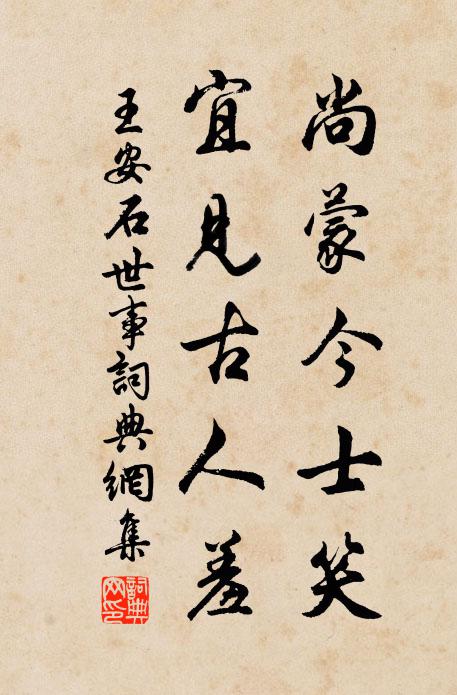 尚蒙今士笑
宜見古人羞
王安石世事詞典網集
詞典網印